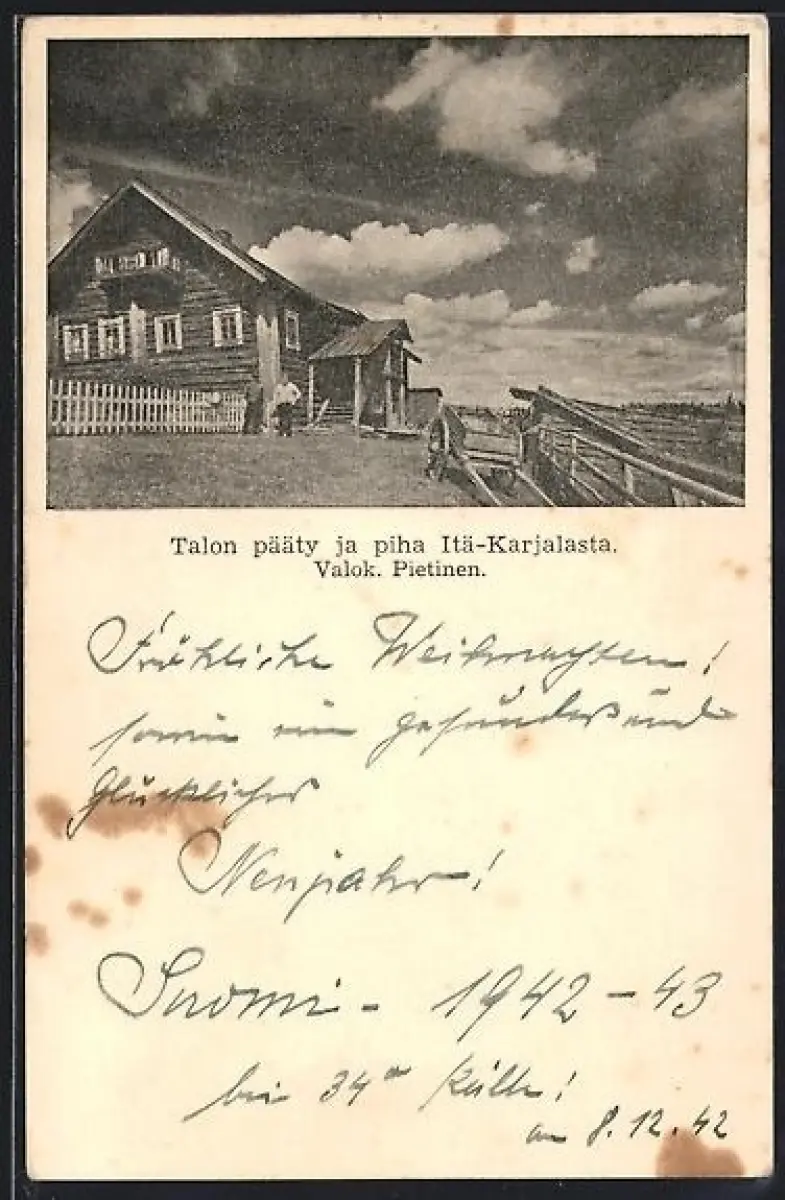 Talon pääty ja piha Itä-Karjalasta.
Valok. Pietinen.
Fröhliche Weihnachten!
sowie ein gesundes und
glückliches
Neujahr!
Suomi - 1942-43
bei 34° Kälte!
am 8.12.42